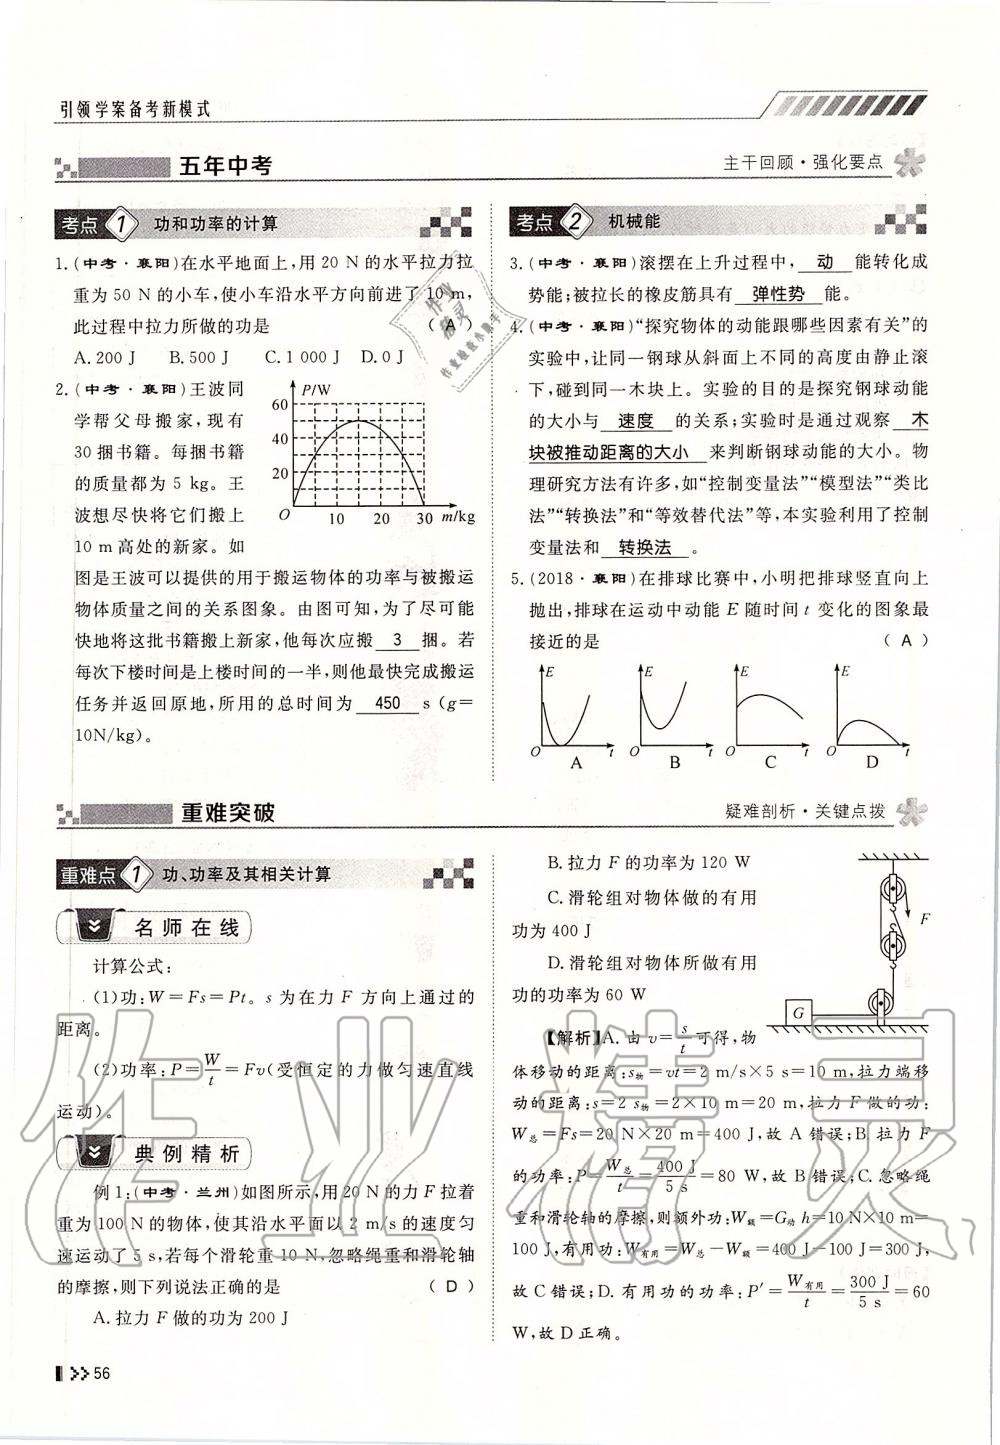 引领学案备考新模式
五年中考
主干回顾·强化要点
考点 1 功和功率的计算
1.(中考·襄阳)在水平地面上,用20 N的水平拉力拉
重为50 N的小车,使小车沿水平方向前进了10 m,
此过程中拉力所做的功是 ( A )
A.200 J B.500 J C.1 000 J D.0 J
2.(中考·襄阳)王波同
学帮父母搬家,现有
30捆书籍。每捆书籍
的质量都为5 kg。王
波想尽快将它们搬上
10 m高处的新家。如
P/W
60
40
20
O 10 20 30 m/kg
图是王波可以提供的用于搬运物体的功率与被搬运
物体质量之间的关系图象。由图可知,为了尽可能
快地将这批书籍搬上新家,他每次应搬 3 捆。若
每次下楼时间是上楼时间的一半,则他最快完成搬运
任务并返回原地,所用的总时间为 450 s(g=
10N/kg)。
考点 2 机械能
3.(中考·襄阳)滚摆在上升过程中, 动 能转化成
势能;被拉长的橡皮筋具有 弹性势 能。
4.(中考·襄阳)“探究物体的动能跟哪些因素有关”的
实验中,让同一钢球从斜面上不同的高度由静止滚
下,碰到同一木块上。实验的目的是探究钢球动能
的大小与 速度 的关系;实验时是通过观察 木
块被推动距离的大小 来判断钢球动能的大小。物
理研究方法有许多,如“控制变量法”“模型法”“类比
法”“转换法”和“等效替代法”等,本实验利用了控制
变量法和 转换法 。
5.(2018·襄阳)在排球比赛中,小明把排球竖直向上
抛出,排球在运动中动能 E 随时间 t 变化的图象最
接近的是 ( A )
E E E E
O t O t O t O t
A B C D
重难突破
疑难剖析·关键点拨
重难点 1 功、功率及其相关计算
名师在线
计算公式:
(1)功:W=Fs=Pt。s 为在力 F 方向上通过的
距离。
(2)功率:P=W/t=Fv(受恒定的力做匀速直线
运动)。
典例精析
例1:(中考·兰州)如图所示,用20 N的力F拉着
重为100 N的物体,使其沿水平面以2 m/s的速度匀
速运动了5 s,若每个滑轮重10 N,忽略绳重和滑轮轴
的摩擦,则下列说法正确的是 ( D )
A.拉力F做的功为200 J
B.拉力F的功率为120 W
C.滑轮组对物体做的有用
功为400 J
D.滑轮组对物体所做有用
功的功率为60 W
F
G
【解析】A.由v=s/t可得,物
体移动的距离:s物=vt=2 m/s×5 s=10 m,拉力端移
动的距离:s=2 s物=2×10 m=20 m,拉力F做的功:
W总=Fs=20 N×20 m=400 J,故A错误;B.拉力F
的功率:P=W总/t=400 J/5 s=80 W,故B错误;C.忽略绳
重和滑轮轴的摩擦,则额外功:W额=G动 h=10 N×10 m=
100 J,有用功:W有用=W总-W额=400 J-100 J=300 J,
故C错误;D.有用功的功率:P′=W有用/t=300 J/5 s=60
W,故D正确。
56
作业精灵